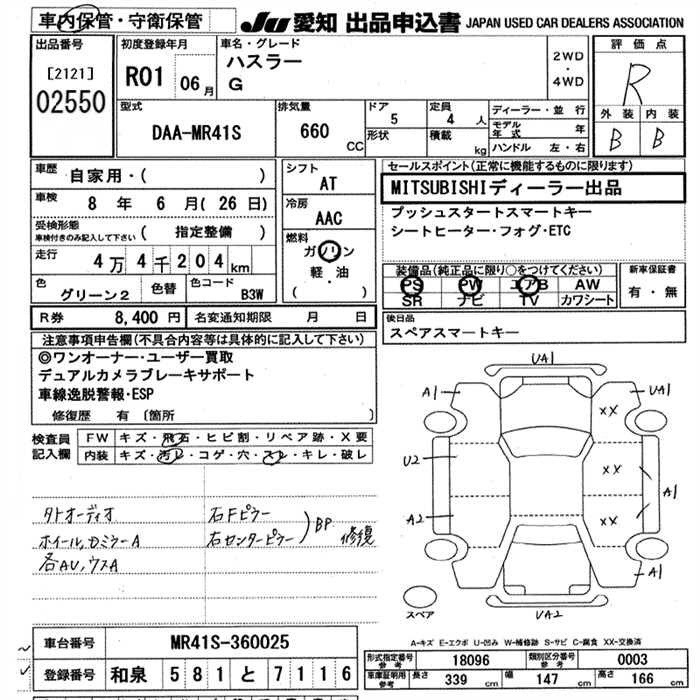 車内保管・守衛保管 JU 愛知 出品申込書 JAPAN USED CAR DEALERS ASSOCIATION
出品番号
[2121]
02550
初度登録年月
R01 06月
車名・グレード
ハスラー
G
2WD
・
4WD
評価点
R
外装 内装
B B
型式
DAA-MR41S
排気量
660 CC
ドア
5
形状
定員
4 人
積載
kg
ディーラー・並行
モデル年式 年
ハンドル 左・右
車歴
自家用・( )
車検
8 年 6 月( 26 日)
受検形態
車検付きのみ記入して下さい ( 指定整備 )
走行
4万4千204km
色
グリーン2
色替
色コード
B3W
シフト
AT
冷房
AAC
燃料
ガソリン
軽・油
( )
セールスポイント(正常に機能するものに限ります)
MITSUBISHIディーラー出品
プッシュスタートスマートキー
シートヒーター・フォグ・ETC
装備品(純正品に限り○をつけてください)
PS PW エアB AW
SR ナビ TV カワシート
新車保証書
有・無
R券 8,400 円 名変通知期限 月 日
後日品
スペアスマートキー
注意事項申告欄(不具合内容等は具体的に記入して下さい)
◎ワンオーナー・ユーザー買取
デュアルカメラブレーキサポート
車線逸脱警報・ESP
修復歴 有 〔箇所 〕
検査員記入欄
FW キズ・飛石・ヒビ割・リペア跡・X要
内装 キズ・汚レ・コゲ・穴・スレ・キレ・破レ
タトオーディオ
ホイール,DミラーA
各AU,ウスA
右Fピラー
右センターピラー
BP 修復
UA1
A1 UA1
XX
U2 XX
A1
A2 XX
A1
スペア
UA2
A-キズ E-エクボ U-凹み W-補修跡 S-サビ C-腐食 XX-交換済
車台番号 MR41S-360025
登録番号 和泉 581と7116
形式指定番号 参考 18096 類別区分番号 参考 0003
車庫証明用 参考 長さ 339 cm 幅 147 cm 高さ 166 cm